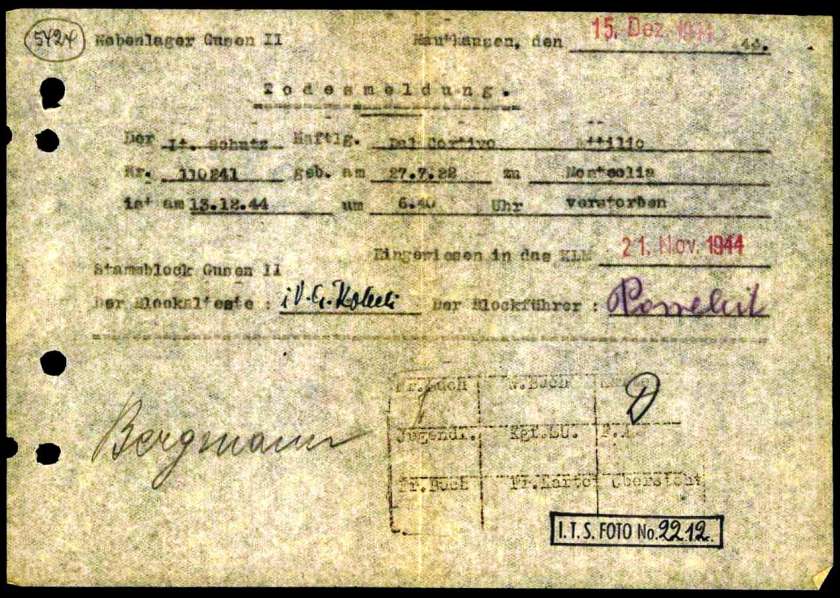 5424 Nebenlager Gusen II Mauthausen, den 15. Dez. 1944 44.
Todesmeldung.
Der It. Schutz Häftlg. Dal Cortivo Attilio
Nr. 110241 geb. am 27.7.22 zu
ist am 13.12.44 um 6.40 Uhr verstorben
Eingewiesen in das KLM 21. Nov. 1944
Stammblock Gusen II
Der Blockälteste : i.V. G. Der Blockführer :
Bergmann
N.Buch
D
Jugendl. Kgr.LU.
Fr.Buch Fr.Karte Übersicht
I.T.S. FOTO No. 2212.